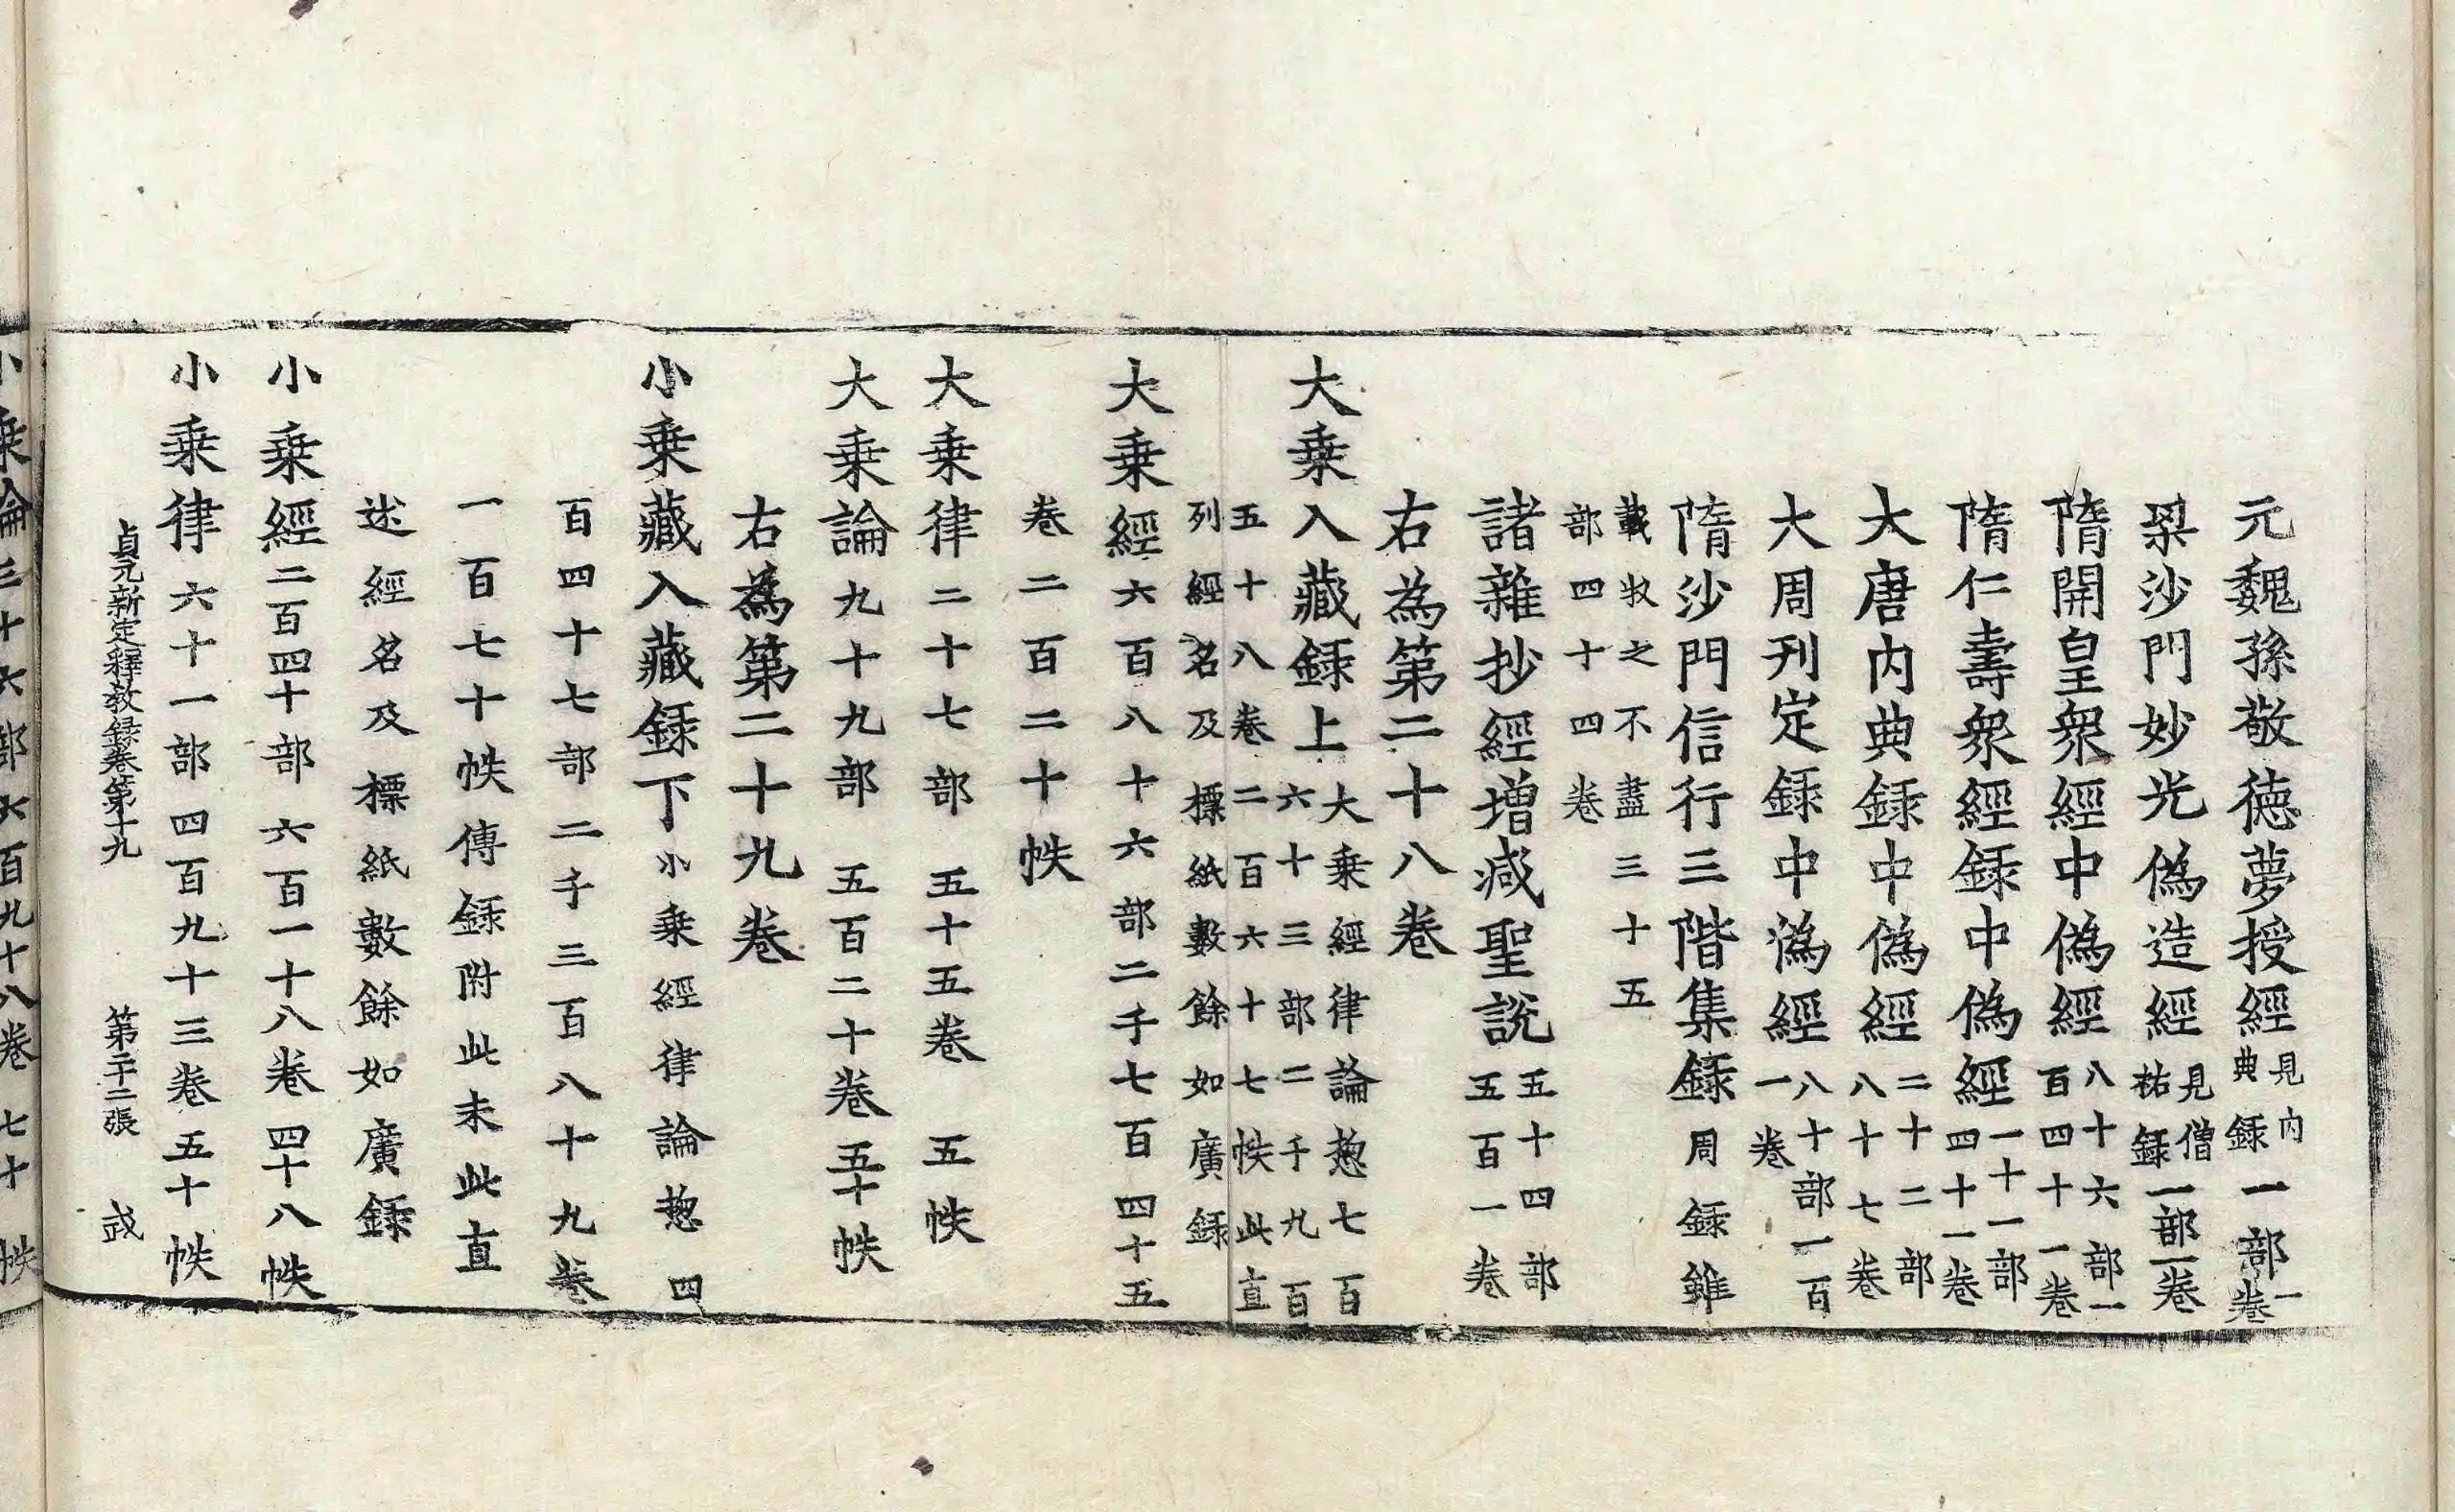 元魏孫敬徳夢授經見内典錄一部一卷
梁沙門妙光偽造經見僧祐錄一部一卷
隋開皇衆經中偽經八十六部一百四十一卷
隋仁壽衆經錄中偽經一十一部四十一卷
大唐内典錄中偽經二十二部八十七卷
大周刊定錄中偽經八十部一百一卷
隋沙門信行三階集錄周錄雖
載收之不盡三十五
部四十四卷
諸雜抄經增減聖說五十四部五百一卷
右為第二十八卷
大乗入藏錄上大乗經律論惣七百六十三部二千九百
五十八卷二百六十七帙此直
列經名及標紙數餘如廣錄
大乗經六百八十六部二千七百四十五
卷二百二十帙
大乗律二十七部 五十五卷 五帙
大乗論九十九部 五百二十卷五十帙
右為第二十九卷
小乗藏入藏錄下小乗經律論惣四
百四十七部二千三百八十九卷
一百七十帙傳錄附此未此直
述經名及標紙數餘如廣錄
小乗經二百四十部六百一十八卷四十八帙
小乗律六十一部四百九十三卷五十帙
貞元新定釋教録卷第十九 第二十二張
小乗論三十六部六百九十八卷七十帙